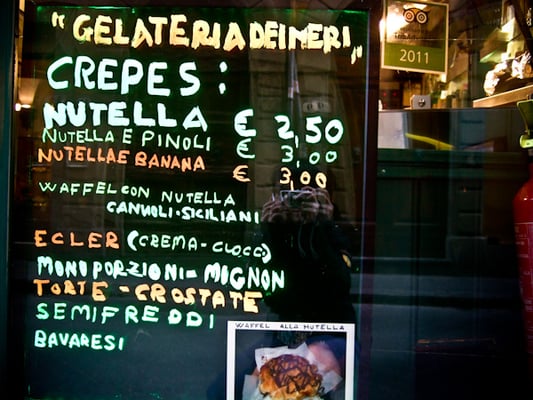 "GELATERIA DEI NERI"
CREPES:
NUTELLA € 2,50
NUTELLA E PINOLI € 3,00
NUTELLA E BANANA € 3,00
WAFFEL CON NUTELLA
CANNOLI-SICILIANI
ECLER (CREMA-CIOCC)
MONOPORZIONI=MIGNON
TORTE-CROSTATE
SEMIFREDDI
BAVARESI
WAFFEL ALLA NUTELLA
2011